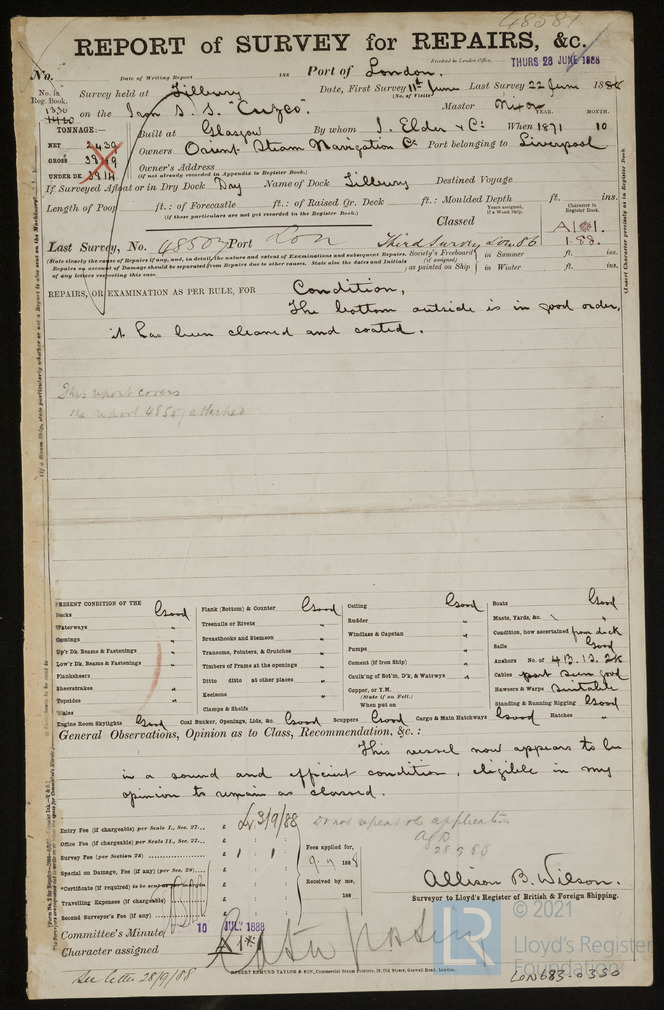 48587
REPORT of SURVEY for REPAIRS, &c.
Received in London Office, THURS 28 JUNE 1888
No. Date of Writing Report 188 Port of London.
No. in Reg. Book. Survey held at Tilbury Date, First Survey 11th June Last Survey 22 June 1888
(No. of Visits )
on the Iron S. S. "Cuzco". Master Nixon
TONNAGE:— Built at Glasgow By whom J. Elder & Co When 1871 YEAR. MONTH. 10
NET 2439
GROSS 3849
UNDER DK. 3814
Owners Orient Steam Navigation Co Port belonging to Liverpool
Owner's Address
(if not already recorded in Appendix to Register Book.)
If Surveyed Afloat or in Dry Dock Dry Name of Dock Tilbury Destined Voyage
Length of Poop ft.: of Forecastle ft.: of Raised Qr. Deck ft.: Moulded Depth ft. ins.
(if these particulars are not yet recorded in the Register Book.)
Years assigned, if a Wood Ship.
Character in Register Book.
Classed A1
1.88.
Last Survey, No. 48507 Port Lon Third Survey Lon. 86
(State clearly the cause of Repairs if any, and, in detail, the nature and extent of Examinations and subsequent Repairs.
Repairs on account of Damage should be separated from Repairs due to other causes. State also the dates and Initials
of any letters respecting this case.
Society's Freeboard (if assigned) as painted on Ship in Summer ft. ins.
in Winter ft. ins.
REPAIRS, OR EXAMINATION AS PER RULE, FOR Condition,
The bottom outside is in good order,
it has been cleaned and coated.
This report covers
the report 48507 attached
PRESENT CONDITION OF THE
Decks Good
Waterways "
Comings "
Up'r Dk. Beams & Fastenings "
Low'r Dk. Beams & Fastenings "
Planksheers
Sheerstrakes "
Topsides "
Wales
Engine Room Skylights Good
Plank (Bottom) & Counter Good
Treenails or Rivets "
Breasthooks and Stemson "
Transoms, Pointers, & Crutches "
Timbers of Frame at the openings "
Ditto ditto at other places "
Keelsons "
Clamps & Shelfs
Coal Bunker, Openings, Lids, &c. Good
Ceiling Good
Rudder "
Windlass & Capstan "
Pumps "
Cement (if Iron Ship) "
Caulk'ng of Bot'm, D'k, & Watrwys "
Copper, or Y.M.
(State if on Felt.)
When put on
Scuppers Good Cargo & Main Hatchways Good
Boats Good
Masts, Yards, &c. "
Condition, how ascertained from deck
Sails Good
Anchors No. of 4B. 1S. 2K
Cables part seen good
Hawsers & Warps suitable
Standing & Running Rigging Good
Hatches "
General Observations, Opinion as to Class, Recommendation, &c.:
This vessel now appears to be
in a sound and efficient condition, eligible in my
opinion to remain as classed.
Entry Fee (if chargeable) per Scale I., Sec. 27... £
Office Fee (if chargeable) per Scale II., Sec. 27... £
Survey Fee (per Section 28) £ 1 1
Special on Damage, Fee (if any) (per Sec. 28) £
*Certificate (if required) to be sent as per margin
Travelling Expenses (if chargeable) £
Second Surveyor's Fee (if any) £
3/9/88
Fees applied for,
1888
Received by me,
188
Do not repeat application
28 9 88
Allison B. Wilson.
Surveyor to Lloyd's Register of British & Foreign Shipping.
Committee's Minute 10 JULY 1888
Character assigned A1*
see letter 28/9/88
ROBERT EDMUND TAYLOR & SON, Commercial Steam Printers, 19, Old Street, Goswell Road, London.
© 2021
LR Lloyd's Register
Foundation
LON683-0350